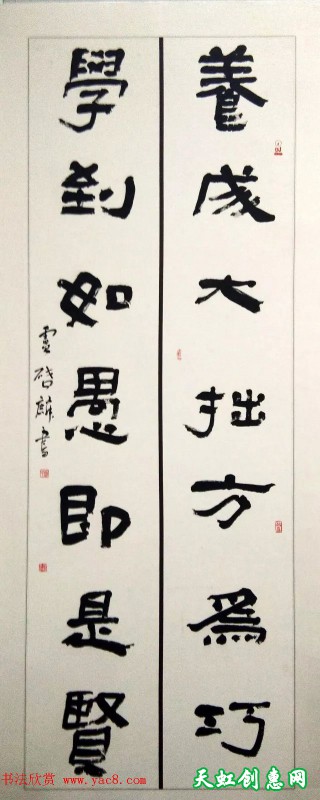 養成大拙方為巧
學到如愚即是賢
書法欣赏 www.yac8.com
天虹创惠网